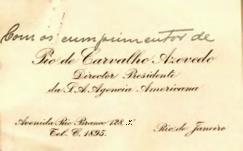 Com os cumprimentos de
Pio de Carvalho Azevedo
Director Presidente
da S.A. Agencia Americana
Avenida Rio Branco 128.
Tel. C. 1895.
Rio de Janeiro